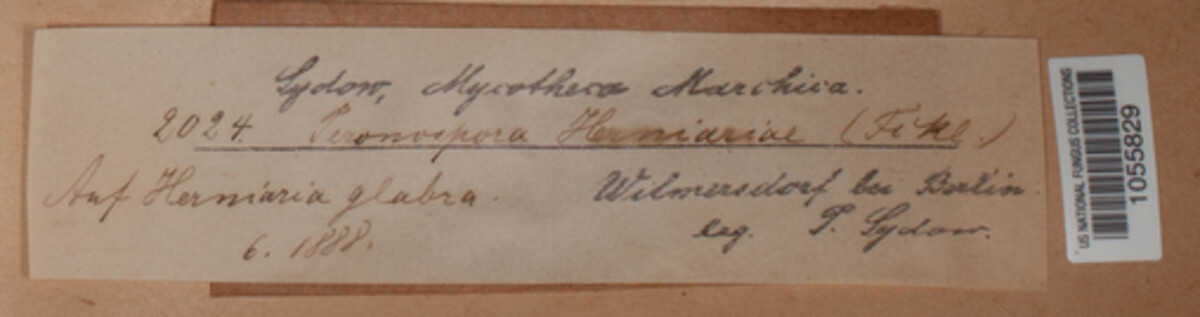 Sydow, Mycotheca Marchica.
2024. Peronospora Herniariae (Fckl.)
Auf Herniaria glabra.
6. 1888.
Wilmersdorf bei Berlin.
leg. P. Sydow.
US NATIONAL FUNGUS COLLECTIONS
1055829